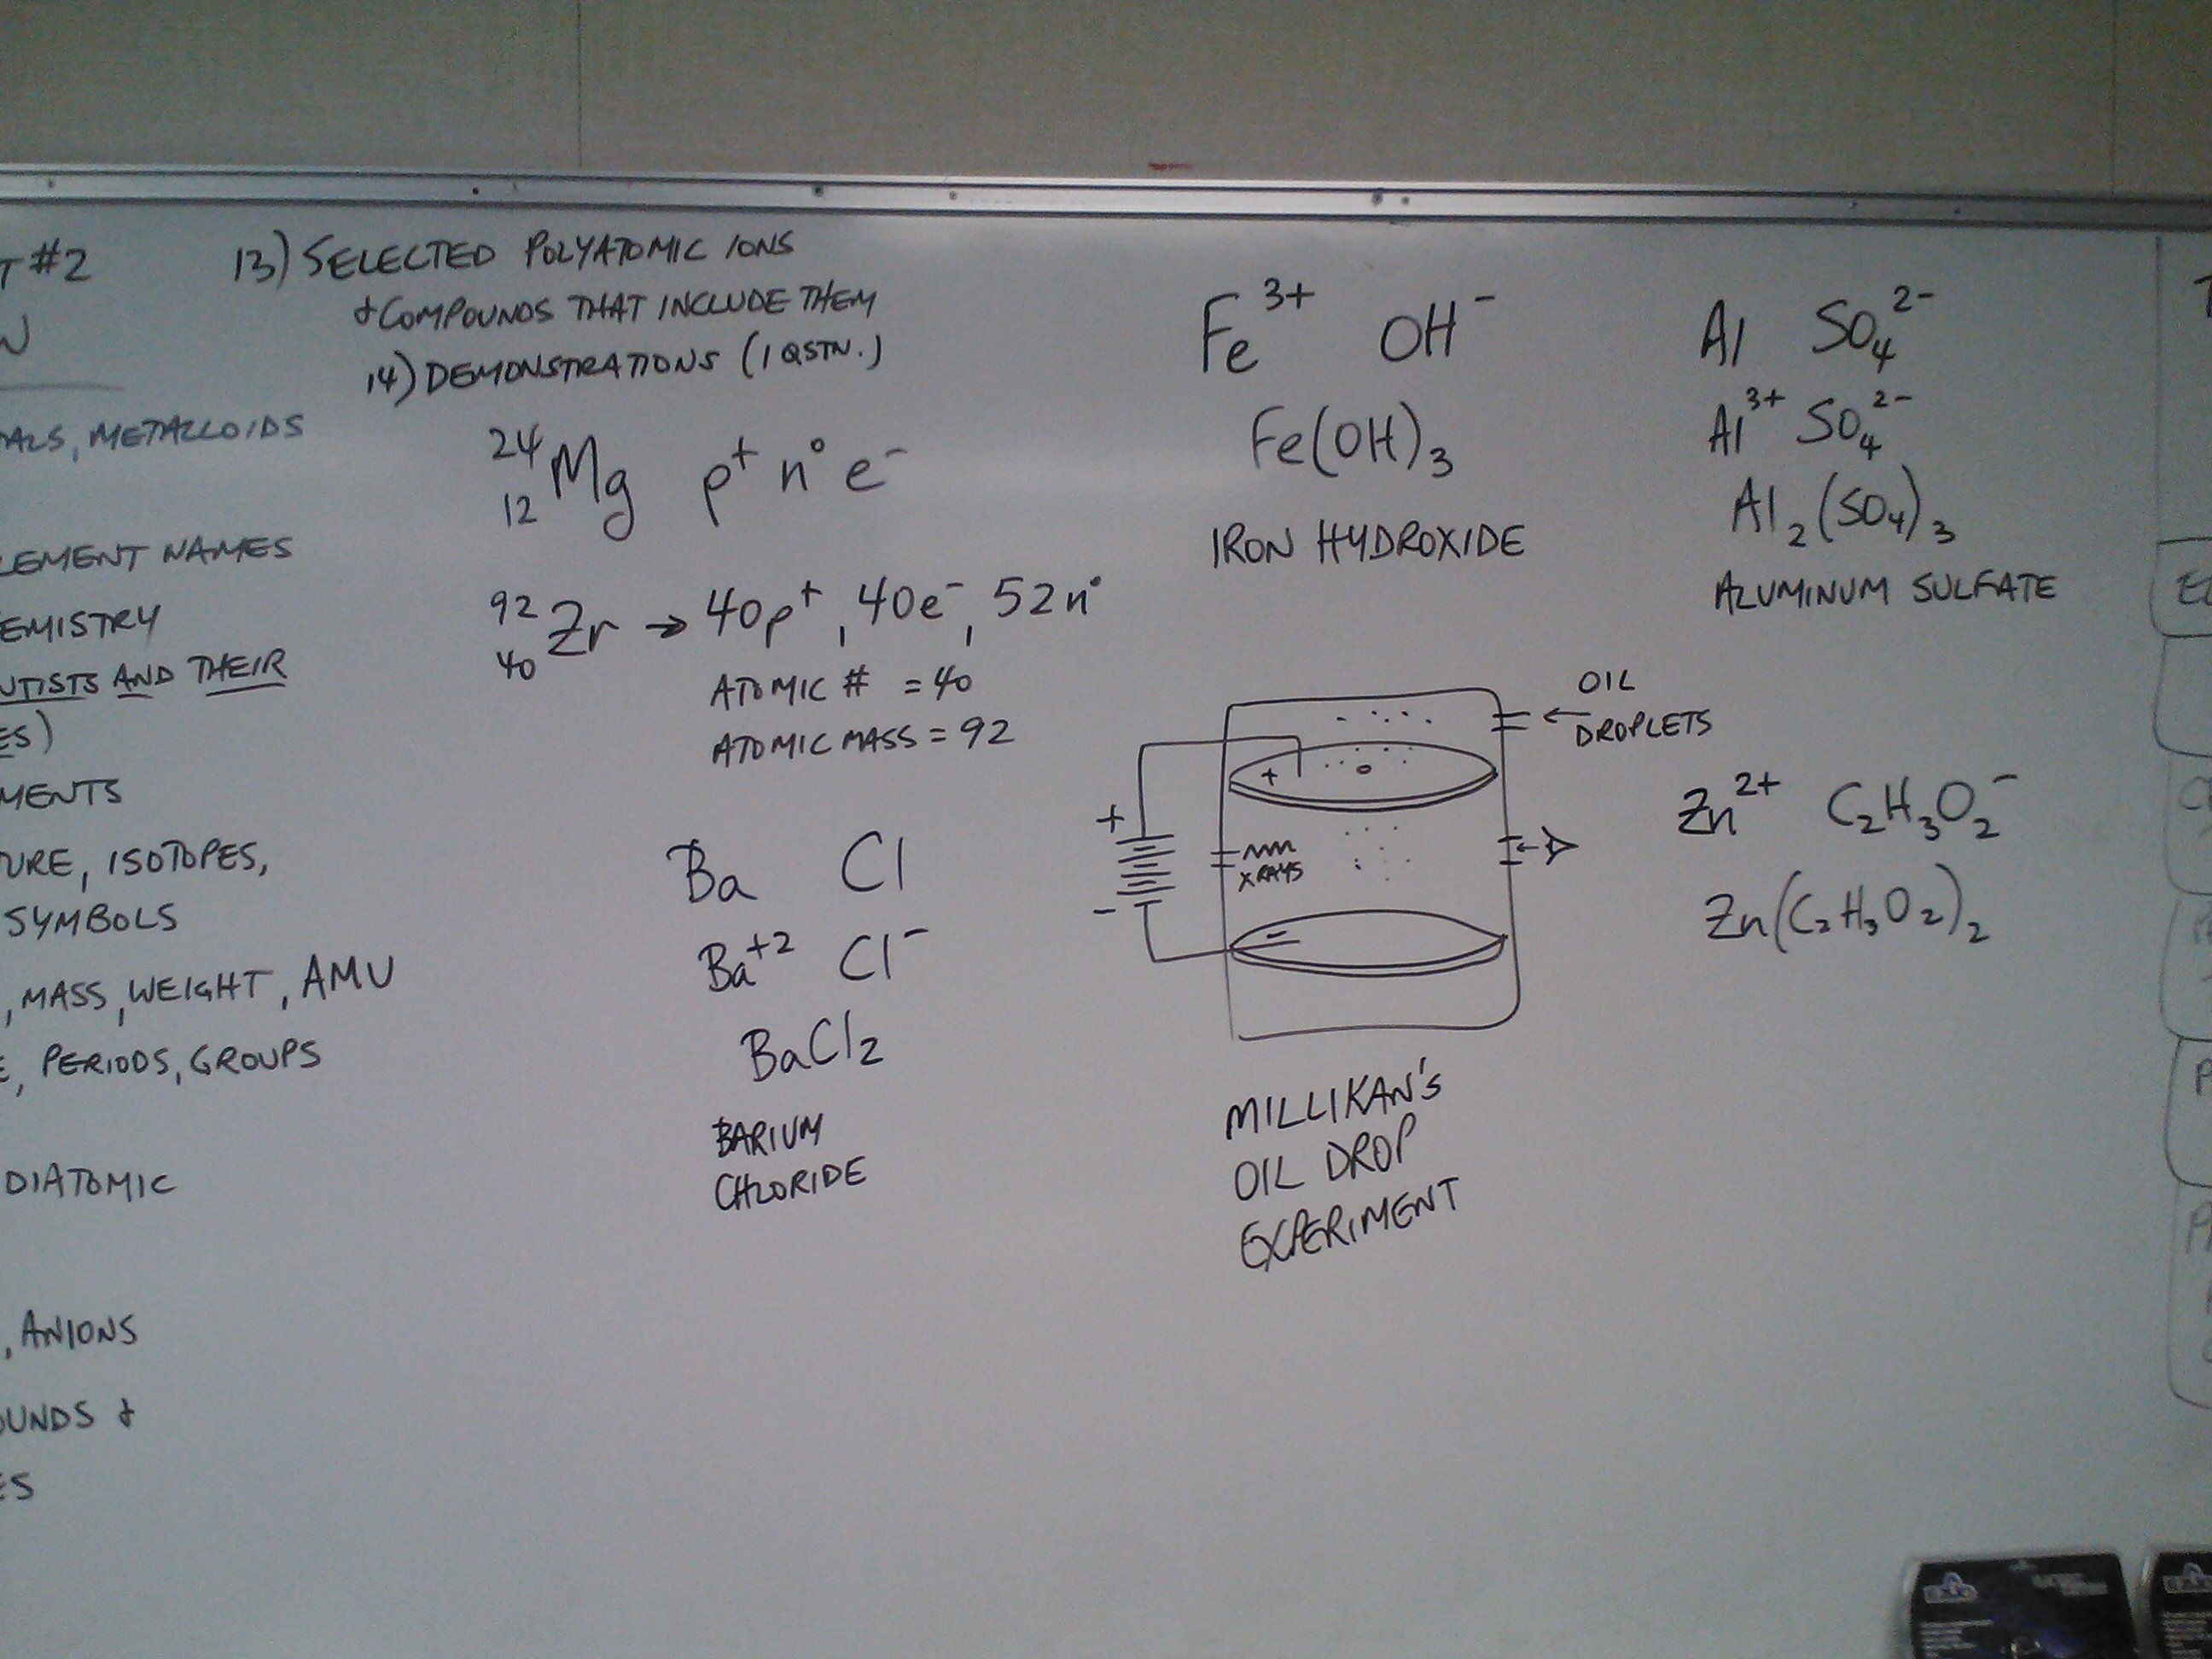 T #2
N
ALS, METALLOIDS
LEMENT NAMES
EMISTRY
NTISTS AND THEIR
ES)
MENTS
TURE, ISOTOPES,
SYMBOLS
, MASS, WEIGHT, AMU
E, PERIODS, GROUPS
DIATOMIC
, ANIONS
OUNDS &
ES
13) SELECTED POLYATOMIC IONS
& COMPOUNDS THAT INCLUDE THEM
14) DEMONSTRATIONS (1 QSTN.)
²⁴₁₂Mg p⁺ n° e⁻
⁹²₄₀Zr → 40p⁺, 40e⁻, 52n°
ATOMIC # = 40
ATOMIC MASS = 92
Ba Cl
Ba⁺² Cl⁻
BaCl₂
BARIUM
CHLORIDE
Fe³⁺ OH⁻
Fe(OH)₃
IRON HYDROXIDE
OIL
DROPLETS
+
+
XRAYS
-
-
MILLIKAN'S
OIL DROP
EXPERIMENT
Al SO₄²⁻
Al³⁺ SO₄²⁻
Al₂(SO₄)₃
ALUMINUM SULFATE
Zn²⁺ C₂H₃O₂⁻
Zn(C₂H₃O₂)₂